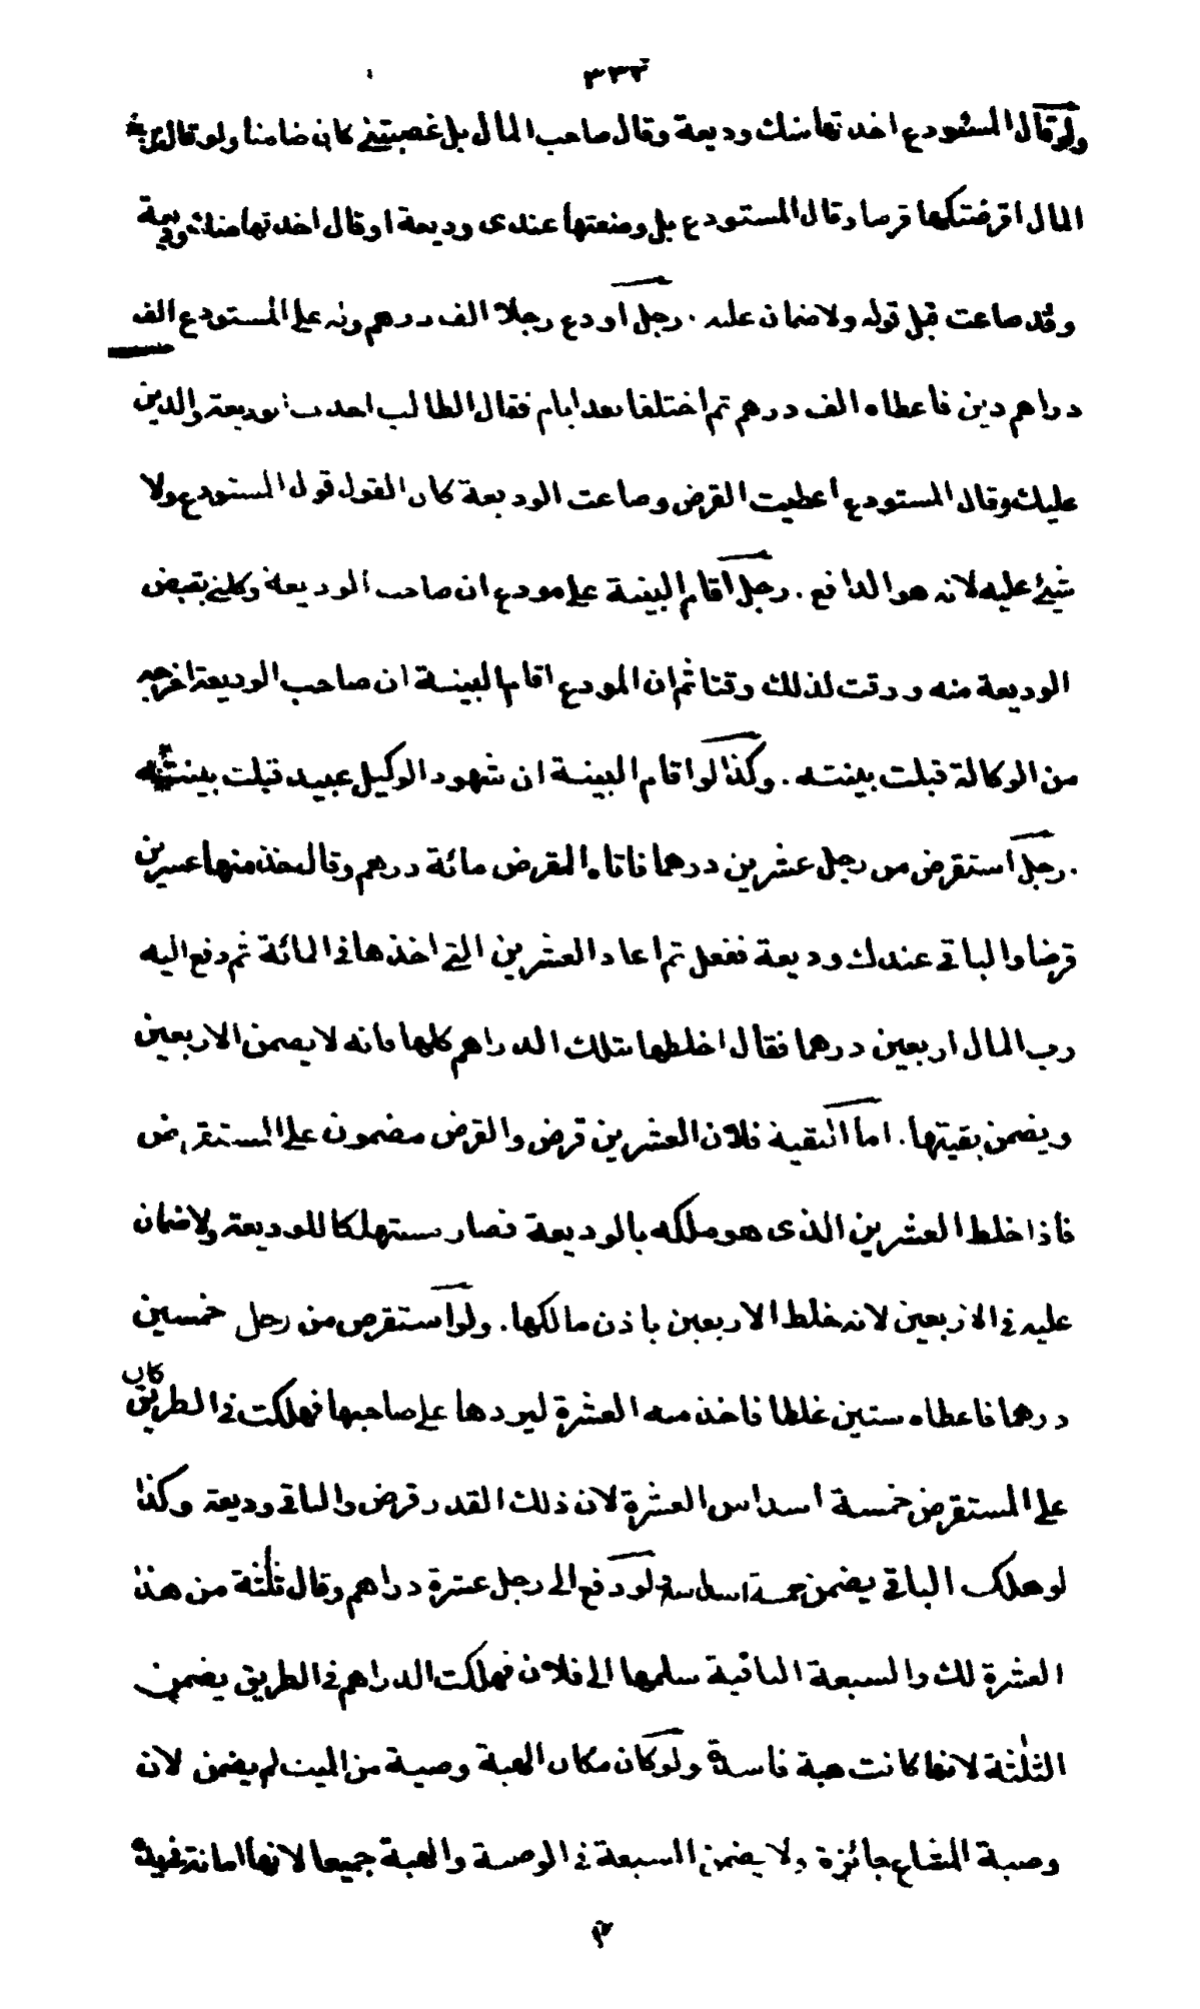 ٣٣٣
ولو قال المستودع اخذتها منك وديعة وقال صاحب المال بل غصبتني كان ضامنا ولو قال رب
المال اقرضتكها قرضا وقال المستودع بل وضعتها عندى وديعة او قال اخذتها منك وديعة
وقد ضاعت قبل قوله ولا ضمان عليه . رجل اودع رجلا الف درهم وله على المستودع الف
دراهم دين فاعطاه الف درهم ثم اختلفا بعد ايام فقال الطالب اخذت الوديعة والدين
عليك وقال المستودع اعطيت القرض وضاعت الوديعة كان القول قول المستودع ولا
شيئ عليه لانه هو الدافع . رجل اقام البينة على مودع ان صاحب الوديعة وكلني بقبض
الوديعة منه ووقت لذلك وقتا ثم ان المودع اقام البينة ان صاحب الوديعة اخرجه
من الوكالة قبلت بينته . وكذا لو اقام البينة ان شهود الوكيل عبيد قبلت بينته
. رجل استقرض من رجل عشرين درهما فاتاه المقرض مائة درهم وقال خذ منها عشرين
قرضا والباقى عندك وديعة ففعل ثم اعاد العشرين التى اخذها في المائة ثم دفع اليه
رب المال اربعين درهما فقال اخلطها بتلك الدراهم كلها فانه لا يضمن الاربعين
ويضمن بقيتها . اما البقية فلان العشرين قرض والقرض مضمون على المستقرض
فاذا خلط العشرين الذى هو ملكه بالوديعة فصار مستهلكا للوديعة ولا ضمان
عليه في الاربعين لانه خلط الاربعين باذن مالكها . ولو استقرض من رجل خمسين
درهما فاعطاه ستين غلطا فاخذ منه العشرة ليردها على صاحبها فهلكت في الطريق كان
على المستقرض خمسة اسداس العشرة لان ذلك القدر قرض والباقى وديعة وكذا
لو هلك الباقى يضمن خمسة اسداسه ولو دفع الى رجل عشرة دراهم وقال ثلثة من هذا
العشرة لك والسبعة الباقية سلمها الى فلان فهلكت الدراهم في الطريق يضمن
الثلثة لانها كانت هبة فاسدة ولو كان مكان الهبة وصية من الميت لم يضمن لان
وصية المشاع جائزة ولا يضمن السبعة في الوصية والهبة جميعا لانها امانة في يده